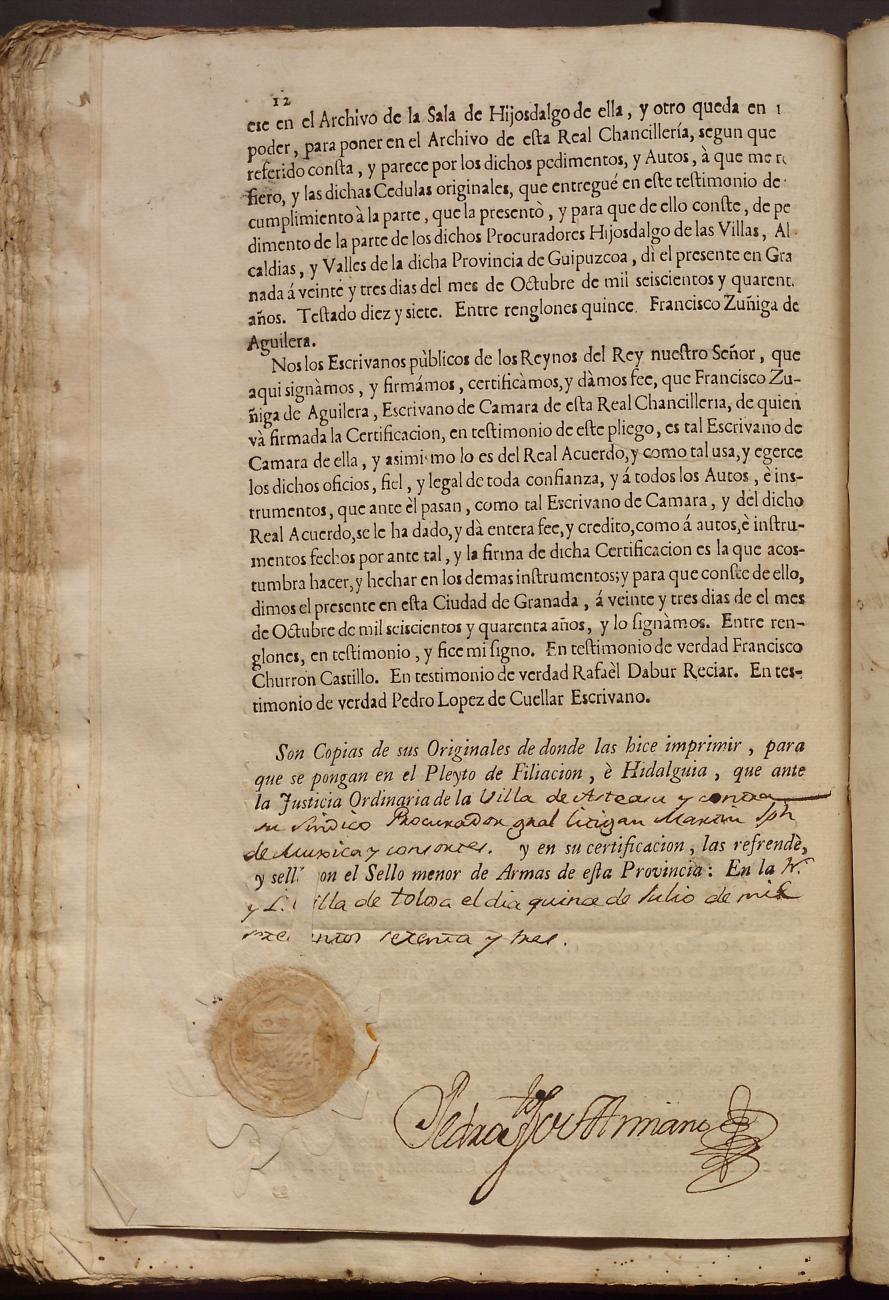 12
ese en el Archivo de la Sala de Hijosdalgo de ella, y otro queda en
poder, para poner en el Archivo de esta Real Chancillería, segun que
referido consta, y parece por los dichos pedimentos, y Autos, à que me
fiero, y las dichas Cedulas originales, que entregué en este testimonio de
cumplimiento à la parte, que la presentò, y para que de ello conste, de pe
dimento de la parte de los dichos Procuradores Hijosdalgo de las Villas, Al
caldias, y Valles de la dicha Provincia de Guipuzcoa, dì el presente en Gra
nada á veinte y tres dias del mes de Octubre de mil seiscientos y quarent.
años. Testado diez y siete. Entre renglones quince. Francisco Zuñiga de
Aguilera.
Nos los Escrivanos pùblicos de los Reynos del Rey nuestro Señor, que
aqui signàmos, y firmámos, certificàmos, y dàmos fee, que Francisco Zu-
ñiga de Aguilera, Escrivano de Camara de esta Real Chancilleria, de quien
và firmada la Certificacion, en testimonio de este pliego, es tal Escrivano de
Camara de ella, y asimismo lo es del Real Acuerdo, y como tal usa, y egerce
los dichos oficios, fiel, y legal de toda confianza, y á todos los Autos, è ins-
trumentos, que ante èl pasan, como tal Escrivano de Camara, y del dicho
Real Acuerdo, se le ha dado, y dà entera fee, y credito, como á autos, è instru-
mentos fechos por ante tal, y la firma de dicha Certificacion es la que acos-
tumbra hacer, y hechar en los demas instrumentos; y para que conste de ello,
dimos el presente en esta Ciudad de Granada, á veinte y tres dias de el mes
de Octubre de mil seiscientos y quarenta años, y lo signàmos. Entre ren-
glones, en testimonio, y fice mi signo. En testimonio de verdad Francisco
Churron Castillo. En testimonio de verdad Rafaèl Dabur Reciar. En tes-
timonio de verdad Pedro Lopez de Cuellar Escrivano.
Son Copias de sus Originales de donde las hice imprimir, para
que se pongan en el Pleyto de Filiacion, è Hidalguia, que ante
la Justicia Ordinaria de la Villa de Asteasu y contra
su Sindico Procurador gnal litigan Martin Jph
de Muxica y consortes. y en su certificacion, las refrendè,
y sell on el Sello menor de Armas de esta Provincia: En la N.
y L. illa de tolosa el dia quince de Julio de mil
entos setenta y tres.
Pedro